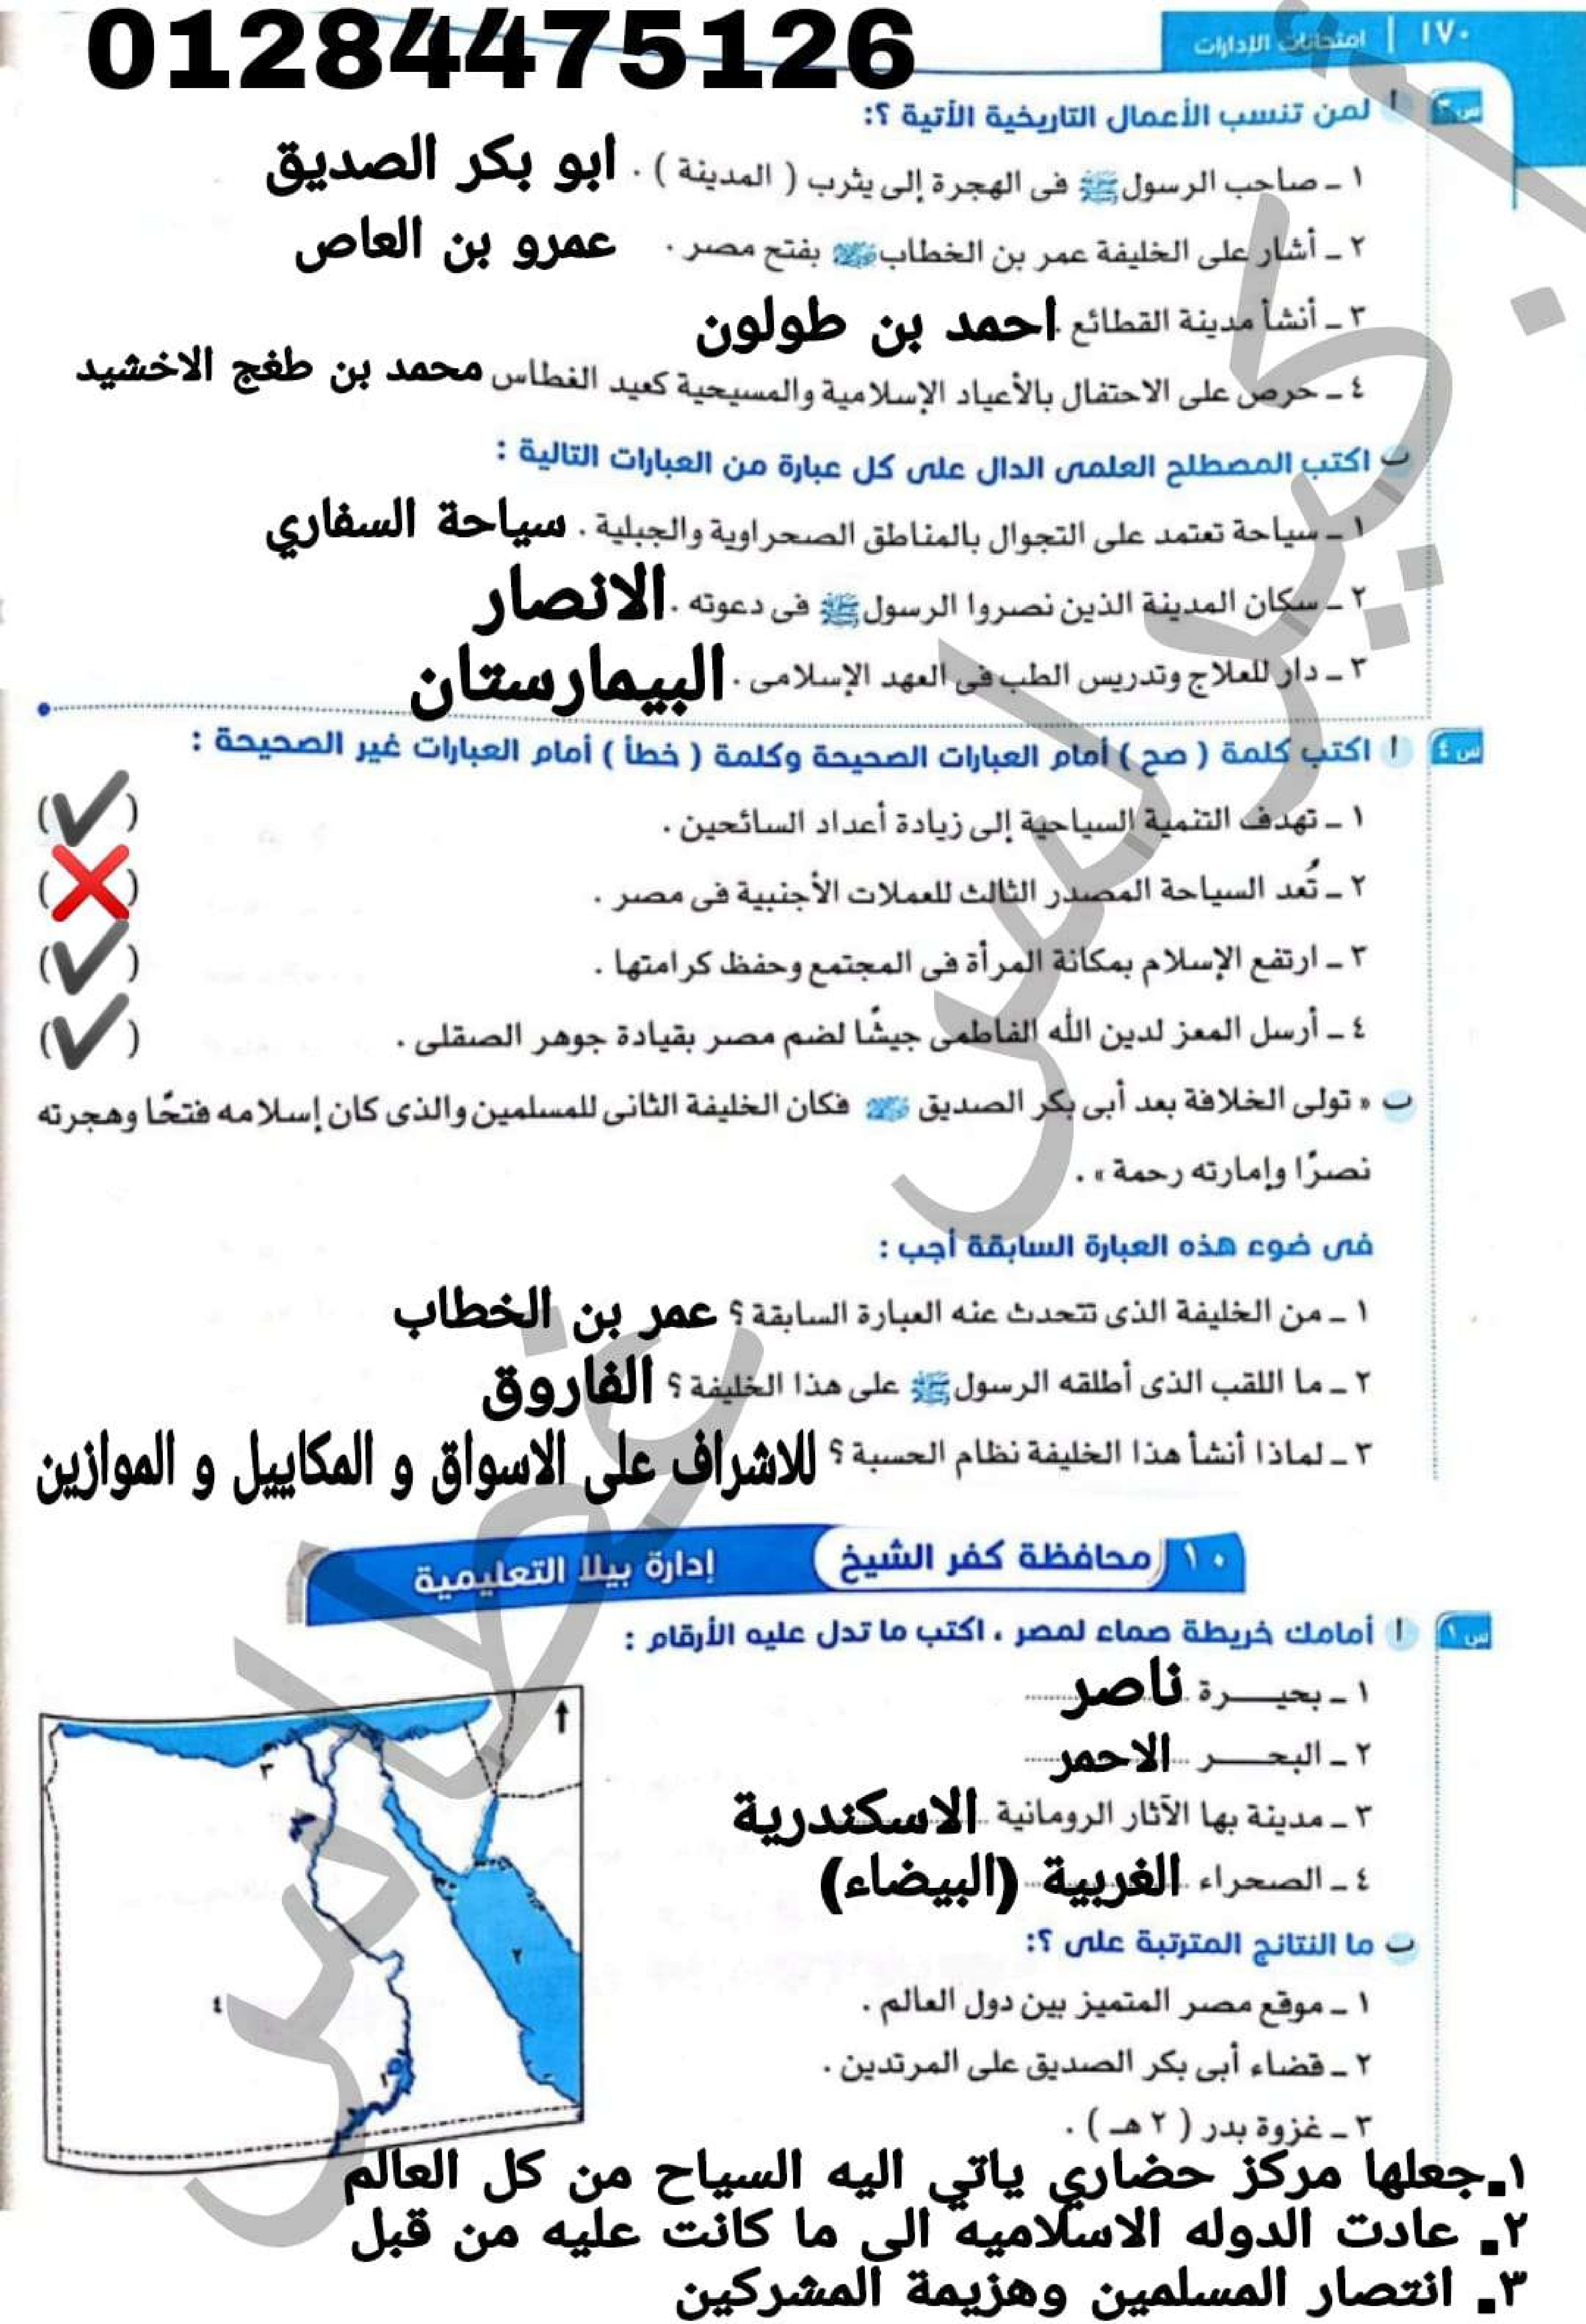 01284475126
١٧٠ | امتحانات الإدارات
س٣ أ لمن تنسب الأعمال التاريخية الأتية ؟:
١ ـ صاحب الرسول ﷺ فى الهجرة إلى يثرب ( المدينة ) . ابو بكر الصديق
٢ ـ أشار على الخليفة عمر بن الخطاب رضي الله عنه بفتح مصر . عمرو بن العاص
٣ ـ أنشأ مدينة القطائع . احمد بن طولون
٤ ـ حرص على الاحتفال بالأعياد الإسلامية والمسيحية كعيد الغطاس محمد بن طغج الاخشيد
ب اكتب المصطلح العلمى الدال على كل عبارة من العبارات التالية :
١ ـ سياحة تعتمد على التجوال بالمناطق الصحراوية والجبلية . سياحة السفاري
٢ ـ سكان المدينة الذين نصروا الرسول ﷺ فى دعوته . الانصار
٣ ـ دار للعلاج وتدريس الطب فى العهد الإسلامى . البيمارستان
س٤ أ اكتب كلمة ( صح ) أمام العبارات الصحيحة وكلمة ( خطأ ) أمام العبارات غير الصحيحة :
١ ـ تهدف التنمية السياحية إلى زيادة أعداد السائحين . (✔)
٢ ـ تُعد السياحة المصدر الثالث للعملات الأجنبية فى مصر . (❌)
٣ ـ ارتفع الإسلام بمكانة المرأة فى المجتمع وحفظ كرامتها . (✔)
٤ ـ أرسل المعز لدين الله الفاطمى جيشًا لضم مصر بقيادة جوهر الصقلى . (✔)
ب « تولى الخلافة بعد أبى بكر الصديق رضي الله عنه فكان الخليفة الثانى للمسلمين والذى كان إسلامه فتحًا وهجرته
نصرًا وإمارته رحمة » .
فى ضوء هذه العبارة السابقة أجب :
١ ـ من الخليفة الذى تتحدث عنه العبارة السابقة ؟ عمر بن الخطاب
٢ ـ ما اللقب الذى أطلقه الرسول ﷺ على هذا الخليفة ؟ الفاروق
٣ ـ لماذا أنشأ هذا الخليفة نظام الحسبة ؟ للاشراف على الاسواق و المكاييل و الموازين
١٠ محافظة كفر الشيخ إدارة بيلا التعليمية
س١ أ أمامك خريطة صماء لمصر ، اكتب ما تدل عليه الأرقام :
١ ـ بحيـــرة ناصر
٢ ـ البحـــر الاحمر
٣ ـ مدينة بها الآثار الرومانية الاسكندرية
٤ ـ الصحراء الغربية (البيضاء)
٣
٢
٤
١
ب ما النتائج المترتبة على ؟:
١ ـ موقع مصر المتميز بين دول العالم .
٢ ـ قضاء أبى بكر الصديق على المرتدين .
٣ ـ غزوة بدر ( ٢ هـ ) .
١.جعلها مركز حضاري ياتي اليه السياح من كل العالم
٢. عادت الدوله الاسلاميه الى ما كانت عليه من قبل
٣. انتصار المسلمين وهزيمة المشركين